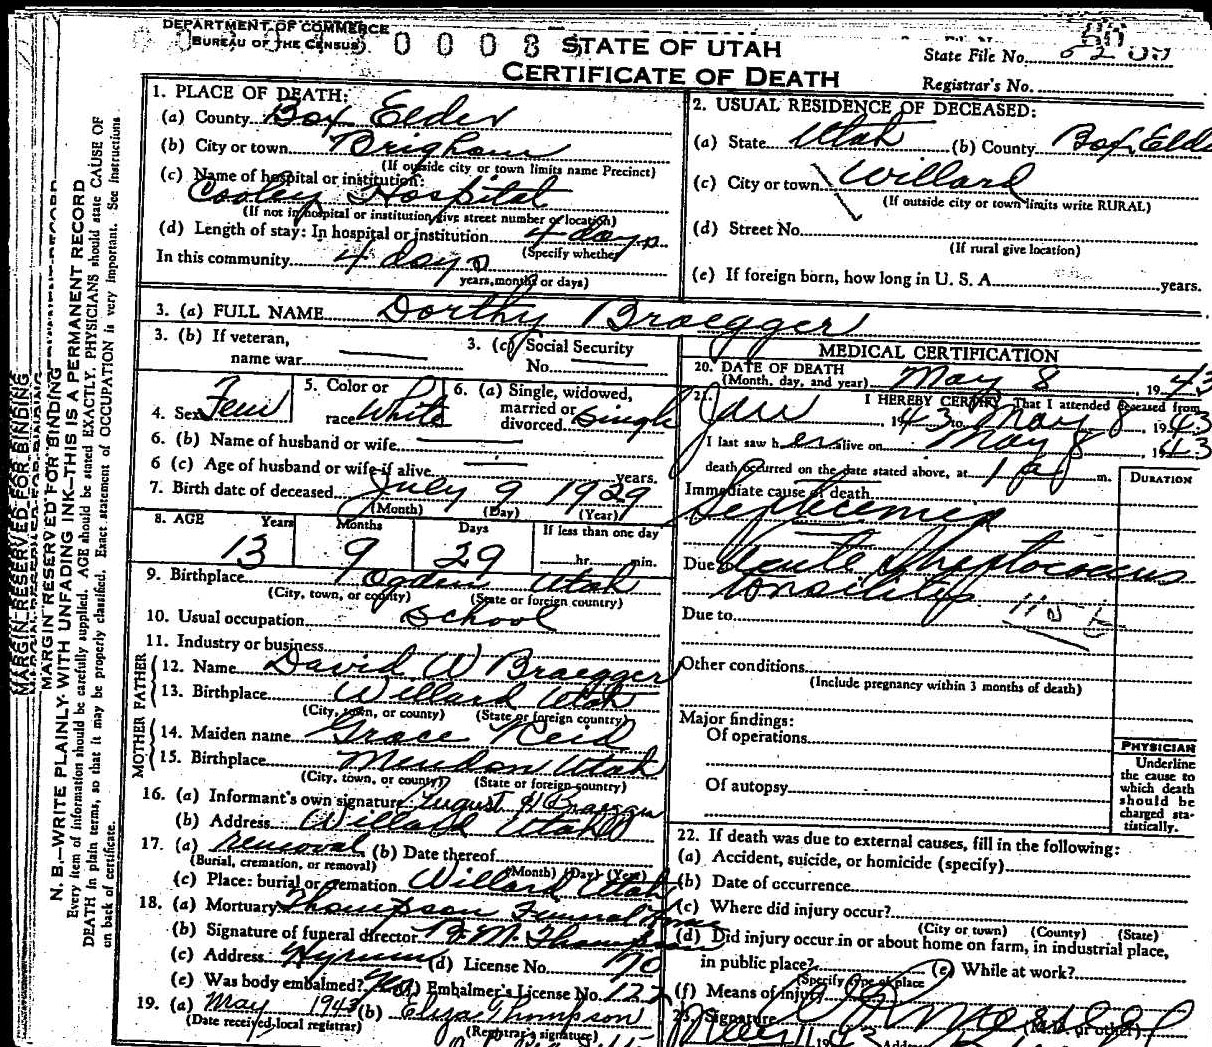 DEPARTMENT OF COMMERCE
BUREAU OF THE CENSUS
STATE OF UTAH
CERTIFICATE OF DEATH
State File No.
Registrar's No.
MARGIN RESERVED FOR BINDING
N. B.—WRITE PLAINLY WITH UNFADING INK—THIS IS A PERMANENT RECORD
Every item of information should be carefully supplied. AGE should be stated EXACTLY. PHYSICIANS should state CAUSE OF
DEATH in plain terms, so that it may be properly classified. Exact statement of OCCUPATION is very important. See instructions
on back of certificate.
1. PLACE OF DEATH:
(a) County Box Elder
(b) City or town Brigham
(If outside city or town limits name Precinct)
(c) Name of hospital or institution:
Cooley Hospital
(If not in hospital or institution give street number or location)
(d) Length of stay: In hospital or institution 4 days
(Specify whether
In this community 4 days
years, months or days)
2. USUAL RESIDENCE OF DECEASED:
(a) State Utah (b) County Box Elde
(c) City or town Willard
(If outside city or town limits write RURAL)
(d) Street No.
(If rural give location)
(e) If foreign born, how long in U. S. A. years.
3. (a) FULL NAME Dorthy Braegger
3. (b) If veteran,
name war
3. (c) Social Security
No.
4. Sex Fem
5. Color or
race White
6. (a) Single, widowed,
married or
divorced Single
6. (b) Name of husband or wife
6 (c) Age of husband or wife if alive years.
7. Birth date of deceased July 9 1929
(Month) (Day) (Year)
8. AGE Years Months Days If less than one day
13 9 29 hr. min.
9. Birthplace Ogden Utah
(City, town, or county) (State or foreign country)
10. Usual occupation School
11. Industry or business
FATHER
12. Name David W Braegger
13. Birthplace Willard Utah
(City, town, or county) (State or foreign country)
MOTHER
14. Maiden name Grace Reid
15. Birthplace Mendon Utah
(City, town, or county) (State or foreign country)
16. (a) Informant's own signature August H Braegger
(b) Address Willard Utah
17. (a) removal (b) Date thereof
(Burial, cremation, or removal) (Month) (Day) (Year)
(c) Place: burial or cremation Willard Utah
18. (a) Mortuary Thompson Funeral Home
(b) Signature of funeral director Thompson
(c) Address Hyrum (d) License No. 70
(e) Was body embalmed? Yes (f) Embalmer's License No. 122
19. (a) May 1943 (b) Eliza Thompson
(Date received local registrar) (Registrar's signature)
MEDICAL CERTIFICATION
20. DATE OF DEATH
(Month, day, and year) May 8, 1943
21. I HEREBY CERTIFY That I attended deceased from
Jan, 1943 to May 8, 1943
I last saw her alive on May 8, 1943
death occurred on the date stated above, at 1 a m.
DURATION
Immediate cause of death
Septicemia
Due to Acute Streptococcus
tonsilitis
Due to
Other conditions
(Include pregnancy within 3 months of death)
Major findings:
Of operations
Of autopsy
PHYSICIAN
Underline
the cause to
which death
should be
charged sta-
tistically.
22. If death was due to external causes, fill in the following:
(a) Accident, suicide, or homicide (specify)
(b) Date of occurrence
(c) Where did injury occur?
(City or town) (County) (State)
(d) Did injury occur in or about home on farm, in industrial place,
in public place? (e) While at work?
(Specify type of place
(f) Means of injury
23. Signature (M.D. or other)